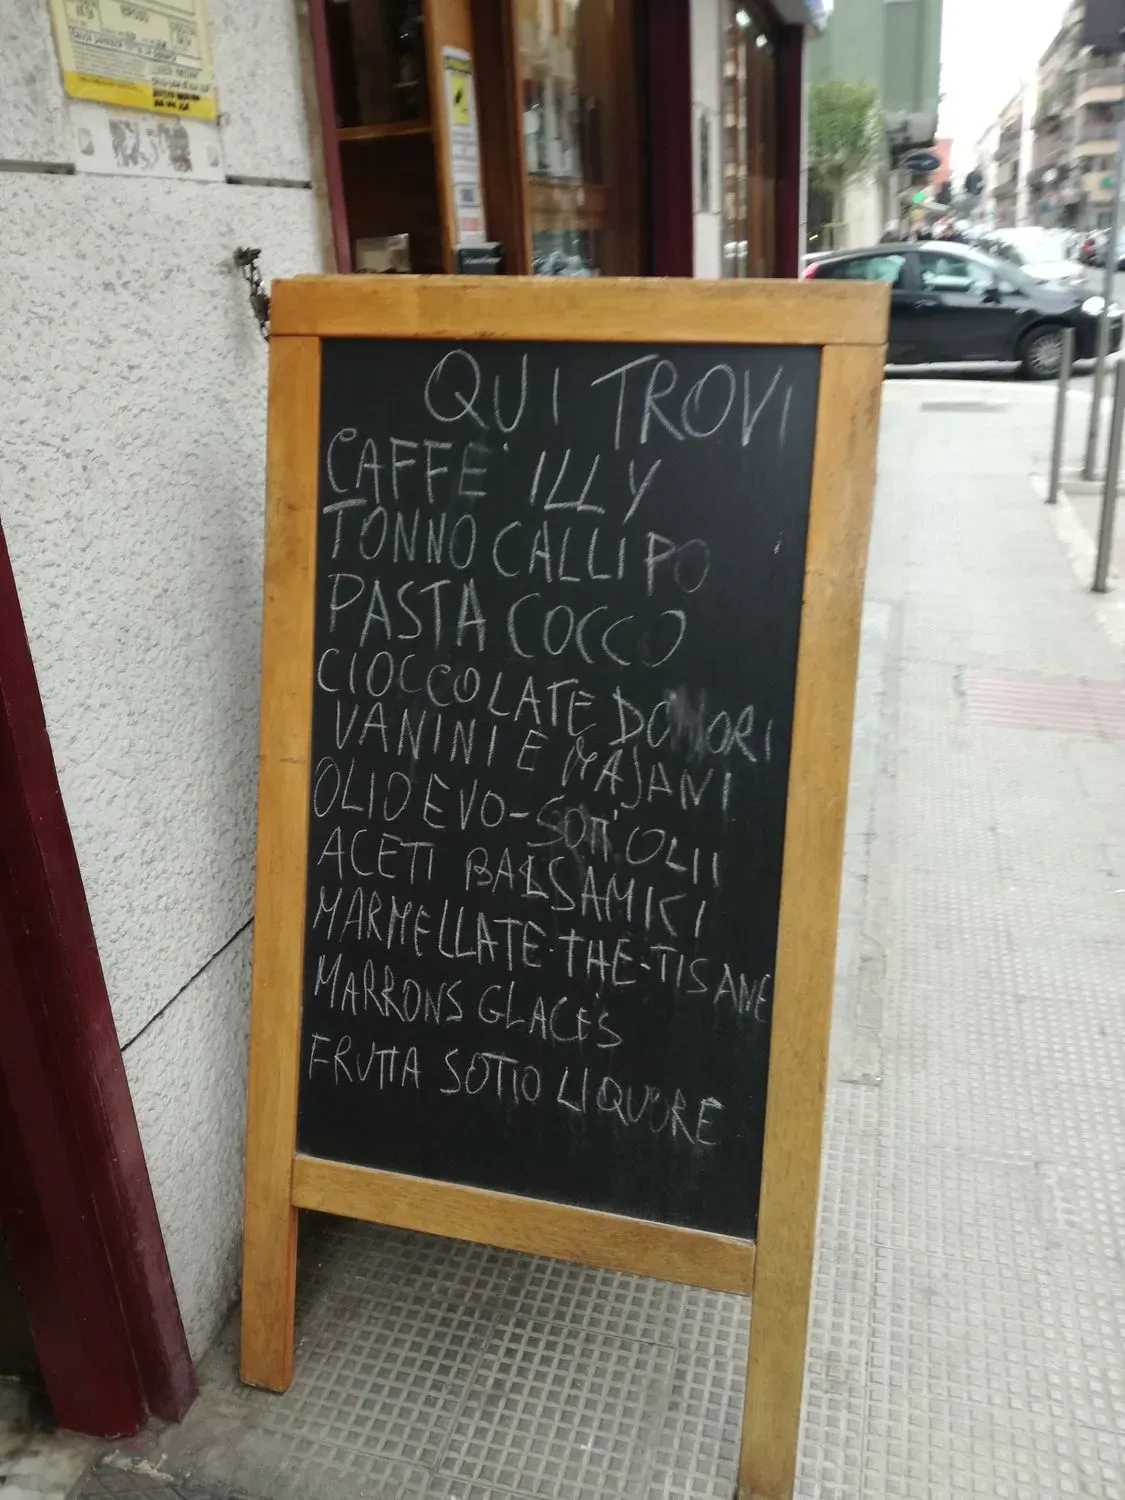 QUI TROVI
CAFFE' ILLY
TONNO CALLIPO
PASTA COCCO
CIOCCOLATE DOMORI
VANINI E MAJANI
OLIO EVO-SOTT'OLII
ACETI BALSAMICI
MARMELLATE·THE-TISANE
MARRONS GLACÉS
FRUTTA SOTTO LIQUORE